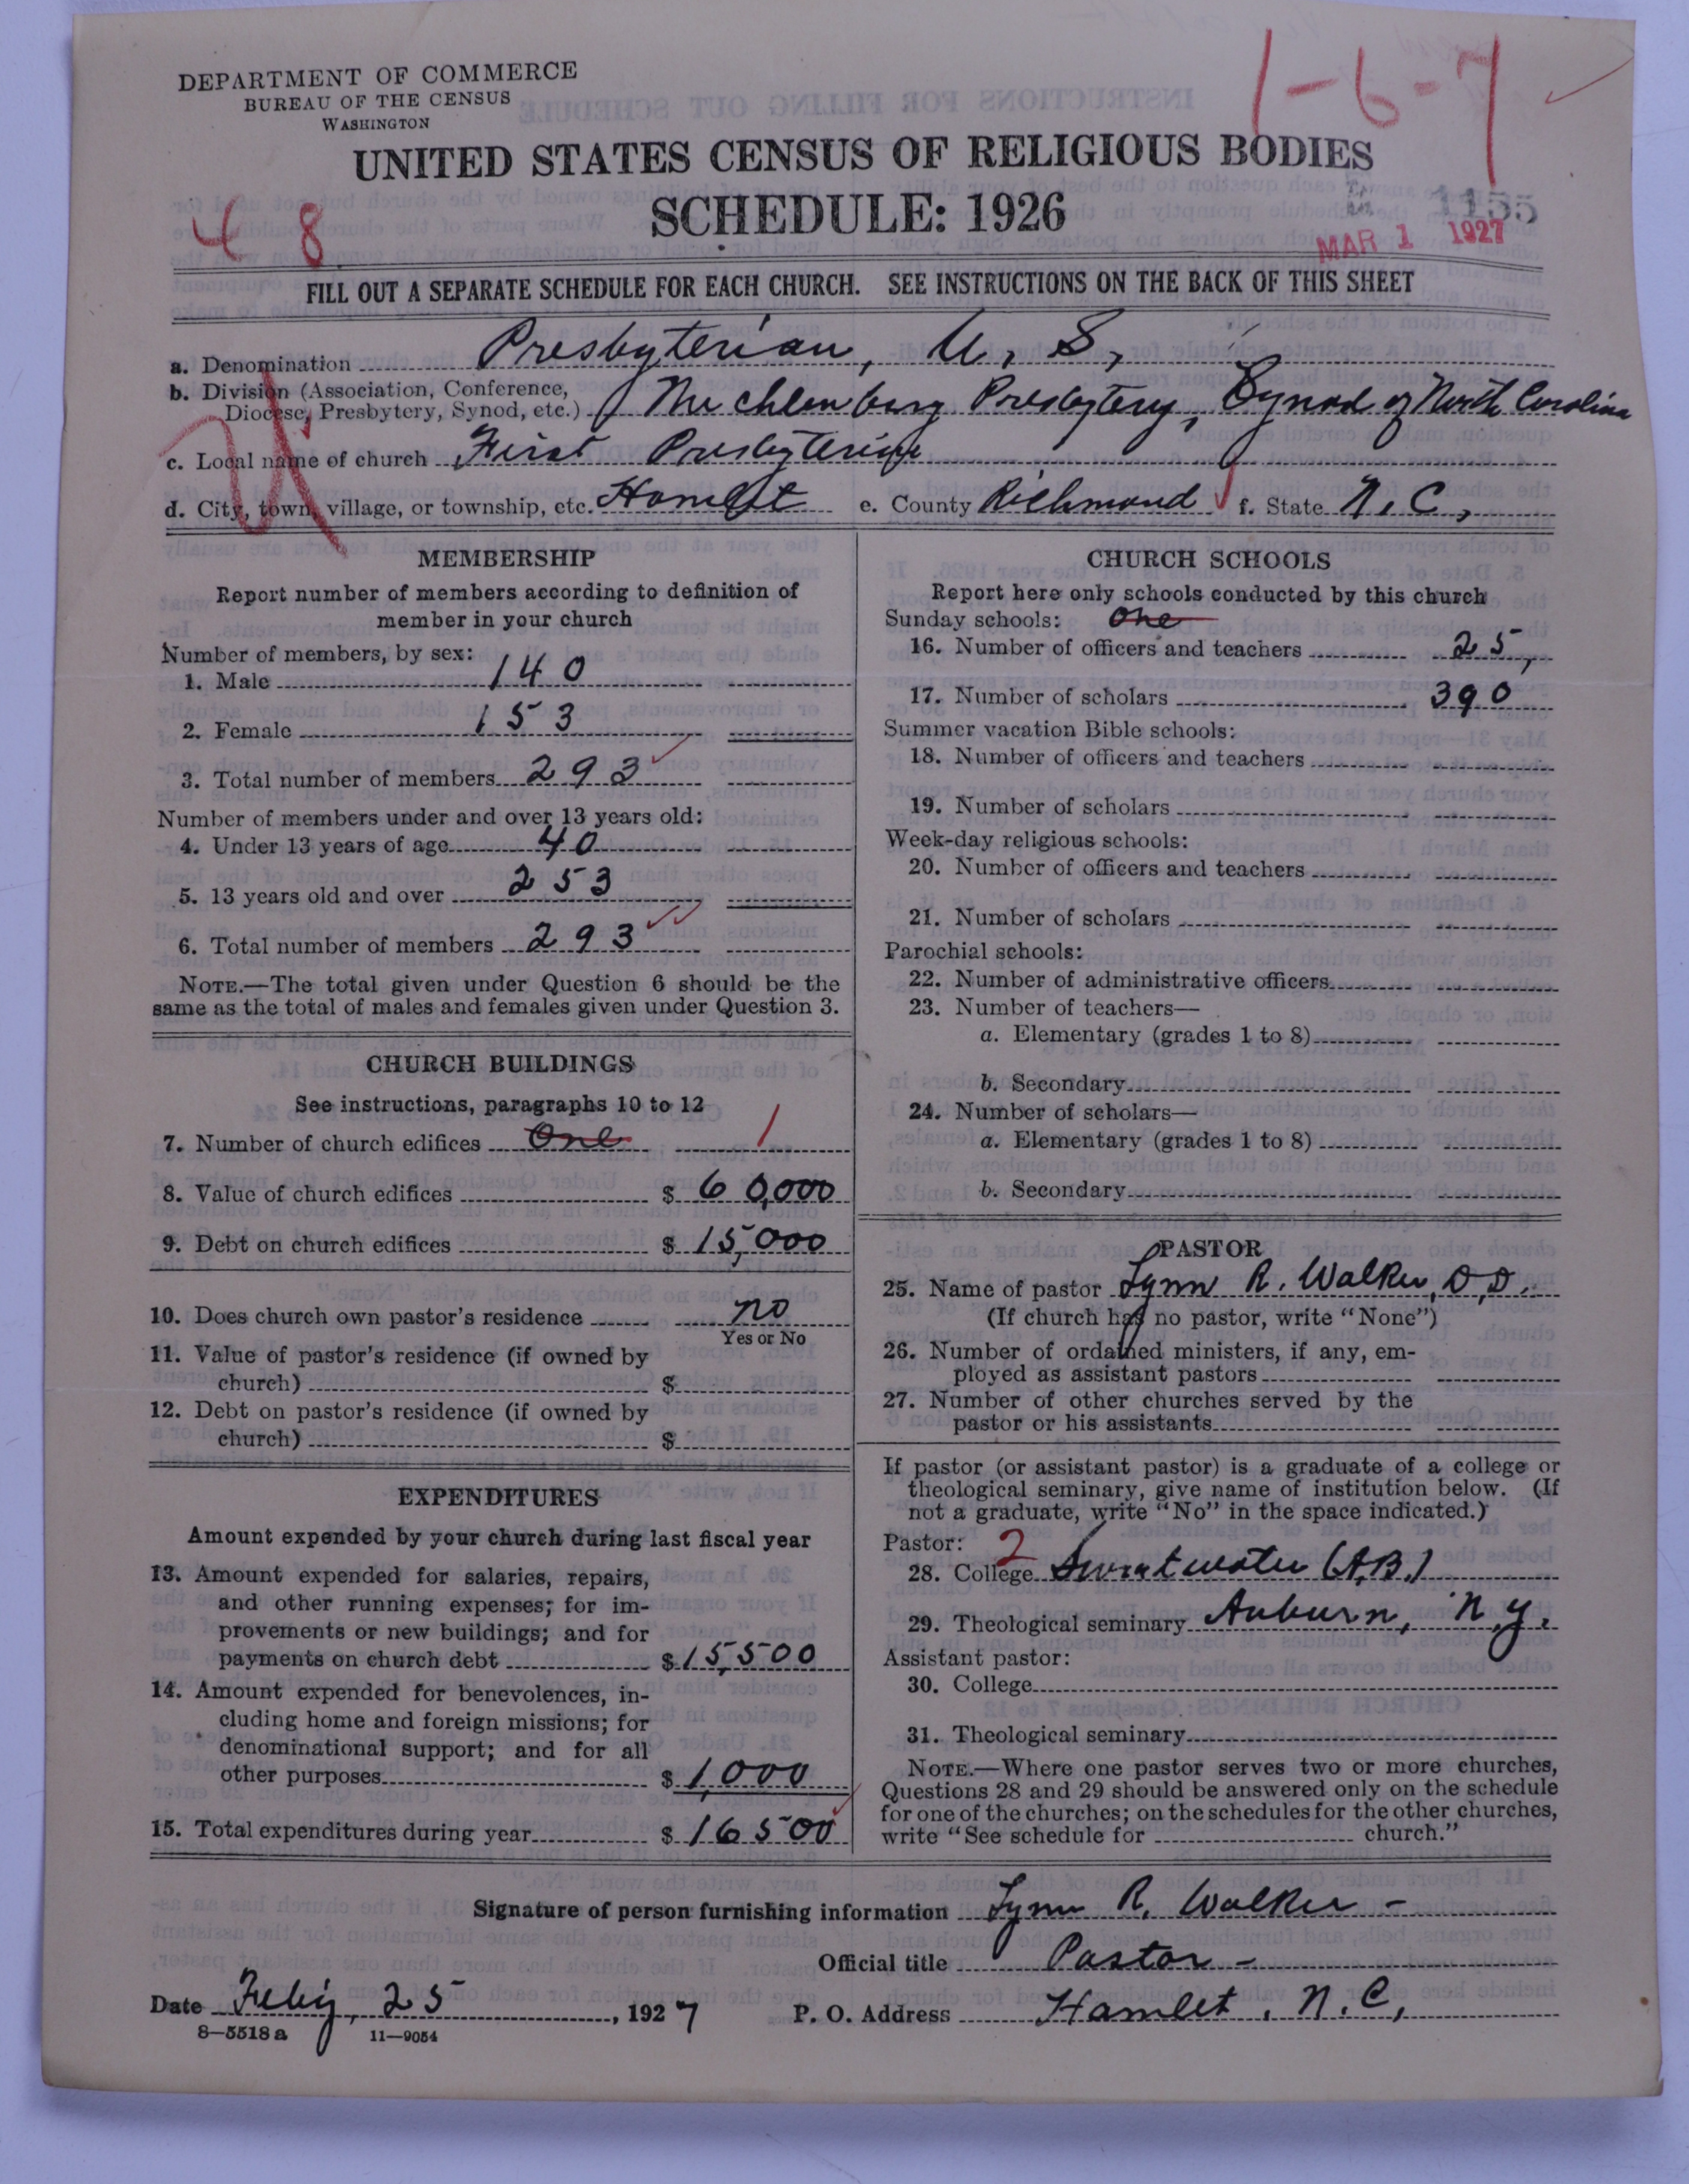 DEPARTMENT OF COMMERCE
BUREAU OF THE CENSUS
WASHINGTON
1-6-7
UNITED STATES CENSUS OF RELIGIOUS BODIES
SCHEDULE: 1926
4 8
1155
MAR 1 1927
FILL OUT A SEPARATE SCHEDULE FOR EACH CHURCH. SEE INSTRUCTIONS ON THE BACK OF THIS SHEET
a. Denomination Presbyterian, U. S,
b. Division (Association, Conference,
Diocese, Presbytery, Synod, etc.) Mechlenburg Presbytery, Synod of North Carolina
c. Local name of church First Presbyterian
d. City, town, village, or township, etc. Hamlet e. County Richmond f. State N. C,
MEMBERSHIP
Report number of members according to definition of
member in your church
Number of members, by sex:
1. Male 140
2. Female 153
3. Total number of members 293
Number of members under and over 13 years old:
4. Under 13 years of age 40
5. 13 years old and over 253
6. Total number of members 293
NOTE.—The total given under Question 6 should be the
same as the total of males and females given under Question 3.
CHURCH BUILDINGS
See instructions, paragraphs 10 to 12
7. Number of church edifices One 1
8. Value of church edifices $ 60,000
9. Debt on church edifices $ 15,000
10. Does church own pastor's residence no
Yes or No
11. Value of pastor's residence (if owned by
church) $
12. Debt on pastor's residence (if owned by
church) $
EXPENDITURES
Amount expended by your church during last fiscal year
13. Amount expended for salaries, repairs,
and other running expenses; for im-
provements or new buildings; and for
payments on church debt $ 15,500
14. Amount expended for benevolences, in-
cluding home and foreign missions; for
denominational support; and for all
other purposes $ 1,000
15. Total expenditures during year $ 16500
CHURCH SCHOOLS
Report here only schools conducted by this church
Sunday schools: One
16. Number of officers and teachers 25,
17. Number of scholars 390
Summer vacation Bible schools:
18. Number of officers and teachers
19. Number of scholars
Week-day religious schools:
20. Number of officers and teachers
21. Number of scholars
Parochial schools:
22. Number of administrative officers
23. Number of teachers—
a. Elementary (grades 1 to 8)
b. Secondary
24. Number of scholars—
a. Elementary (grades 1 to 8)
b. Secondary
PASTOR
25. Name of pastor Lynn R. Walker, D.D.
(If church has no pastor, write "None")
26. Number of ordained ministers, if any, em-
ployed as assistant pastors
27. Number of other churches served by the
pastor or his assistants
If pastor (or assistant pastor) is a graduate of a college or
theological seminary, give name of institution below. (If
not a graduate, write "No" in the space indicated.)
Pastor: 2
28. College Sweetwater (A.B.)
29. Theological seminary Auburn, N.Y.
Assistant pastor:
30. College
31. Theological seminary
NOTE.—Where one pastor serves two or more churches,
Questions 28 and 29 should be answered only on the schedule
for one of the churches; on the schedules for the other churches,
write "See schedule for church."
Signature of person furnishing information Lynn R. Walker -
Official title Pastor -
Date Feb'y, 25, 1927 P. O. Address Hamlet, N.C,
8—5518a 11—9054